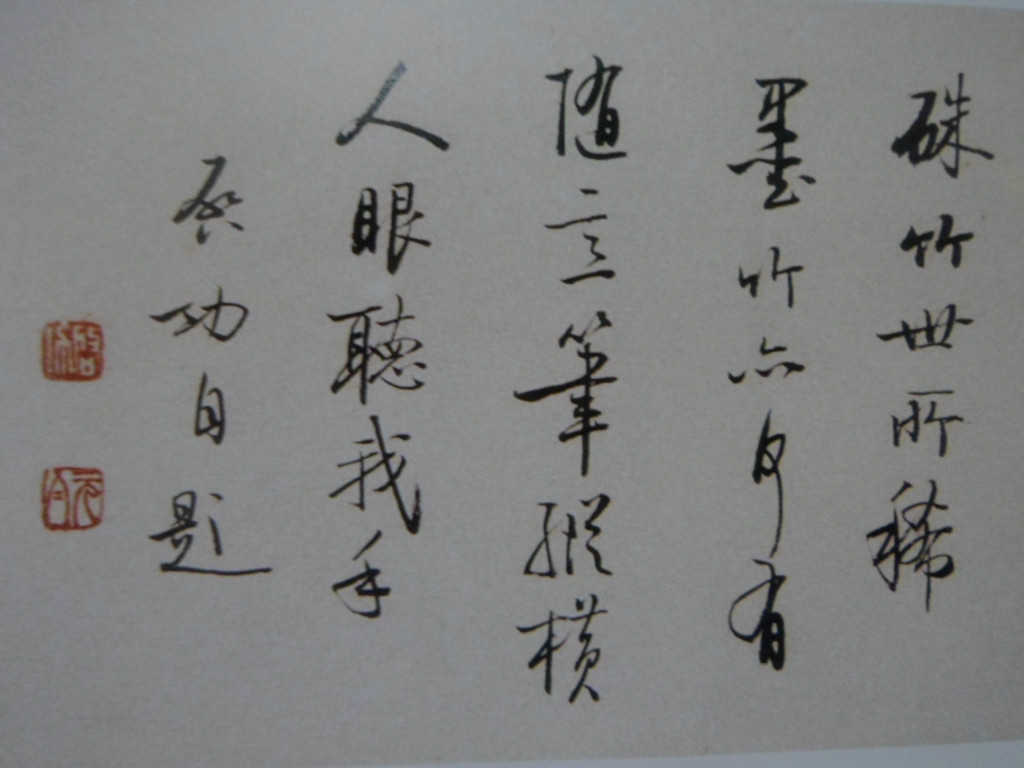 硃竹世所稀
墨竹亦有
隨意筆縱橫
人眼聽我手
啟功自題
元白